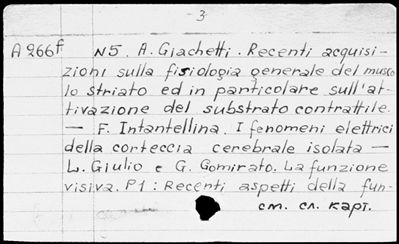 - 3
A 266f N5. A. Giachetti. Recenti acquisi-
zioni sulla fisiologia generale del musco
lo striato ed in particolare sull'at-
tivazione del substrato contrattile.
— F. Intantellina. I fenomeni elettrici
della corteccia cerebrale isolata —
L. Giulio e G. Gomirato. La funzione
visiva. P1: Recenti aspetti della fun-
см. сл. карт.